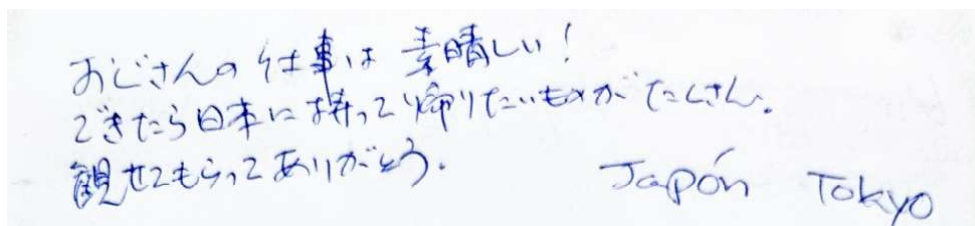 おじさんの仕事は素晴しい!
できたら日本に持って帰りたいものがたくさん。
観せてもらってありがとう。
Japón Tokyo